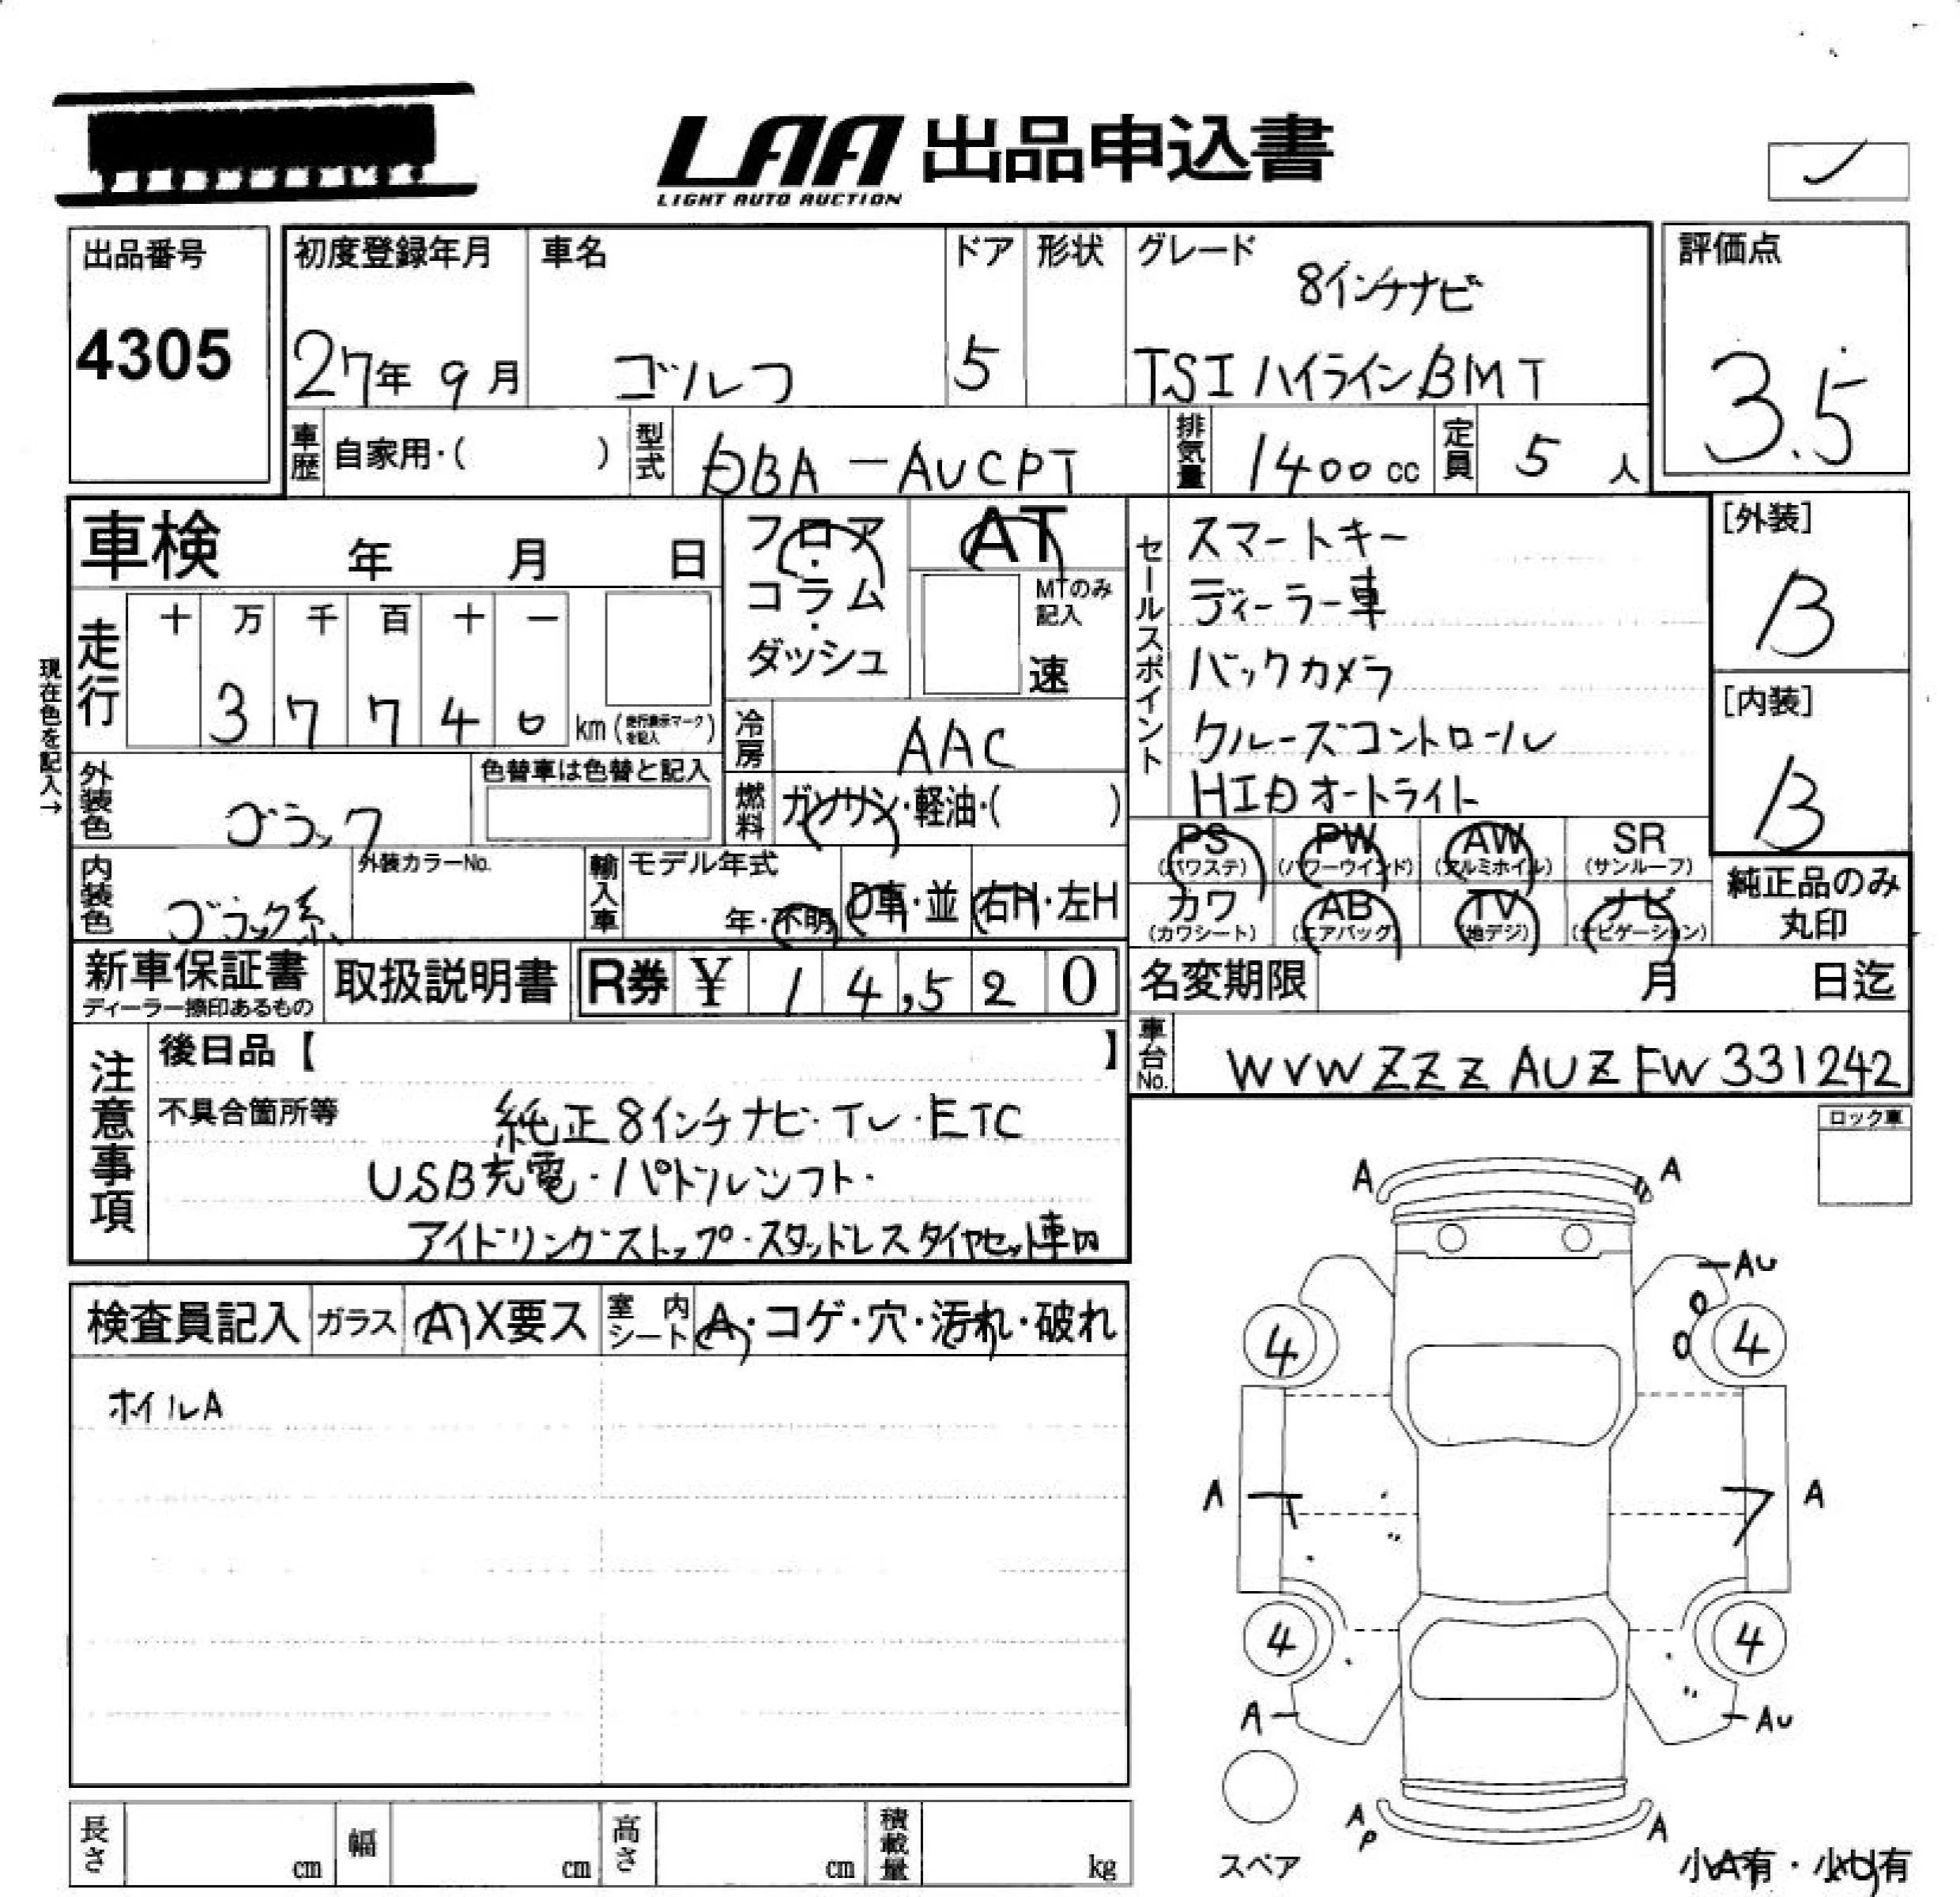 LAA 出品申込書
LIGHT AUTO AUCTION
出品番号
4305
初度登録年月
27年 9月
車名
ゴルフ
ドア
5
形状
グレード
8インチナビ
TSIハイラインBMT
評価点
3.5
車歴 自家用・( )
型式 DBA-AUCPT
排気量 1400cc
定員 5人
車検 年 月 日
フロア・コラム・ダッシュ
AT
MTのみ記入
速
セールスポイント
スマートキー
ディーラー車
バックカメラ
クルーズコントロール
HIDオートライト
[外装]
B
[内装]
B
現在色を記入→
走行
十 万 千 百 十 一
3 7 7 4 0 km (走行表示マークを記入)
冷房 AAC
外装色 ブラック
色替車は色替と記入
燃料 ガソリン・軽油・( )
内装色 ブラック系
外装カラーNo.
輸入車
モデル年式
年・不明
D車・並
右H・左H
PS (パワステ)
PW (パワーウインド)
AW (アルミホイル)
SR (サンルーフ)
カワ (カワシート)
AB (エアバック)
TV (地デジ)
ナビ (ナビゲーション)
純正品のみ丸印
新車保証書
ディーラー捺印あるもの
取扱説明書
R券 ¥ 14,520
名変期限 月 日迄
車台No. WVWZZZAUZFW331242
注意事項
後日品【 】
不具合箇所等
純正8インチナビ・TV・ETC
USB充電・パドルシフト・
アイドリングストップ・スタッドレスタイヤセット車内
ロック車
検査員記入
ガラス A X要ス
室内シート A・コゲ・穴・汚れ・破れ
ホイルA
A A
AU
4 4
A A
4 4
A AU
AP A
スペア
小A有・小U有
長さ cm
幅 cm
高さ cm
積載量 kg